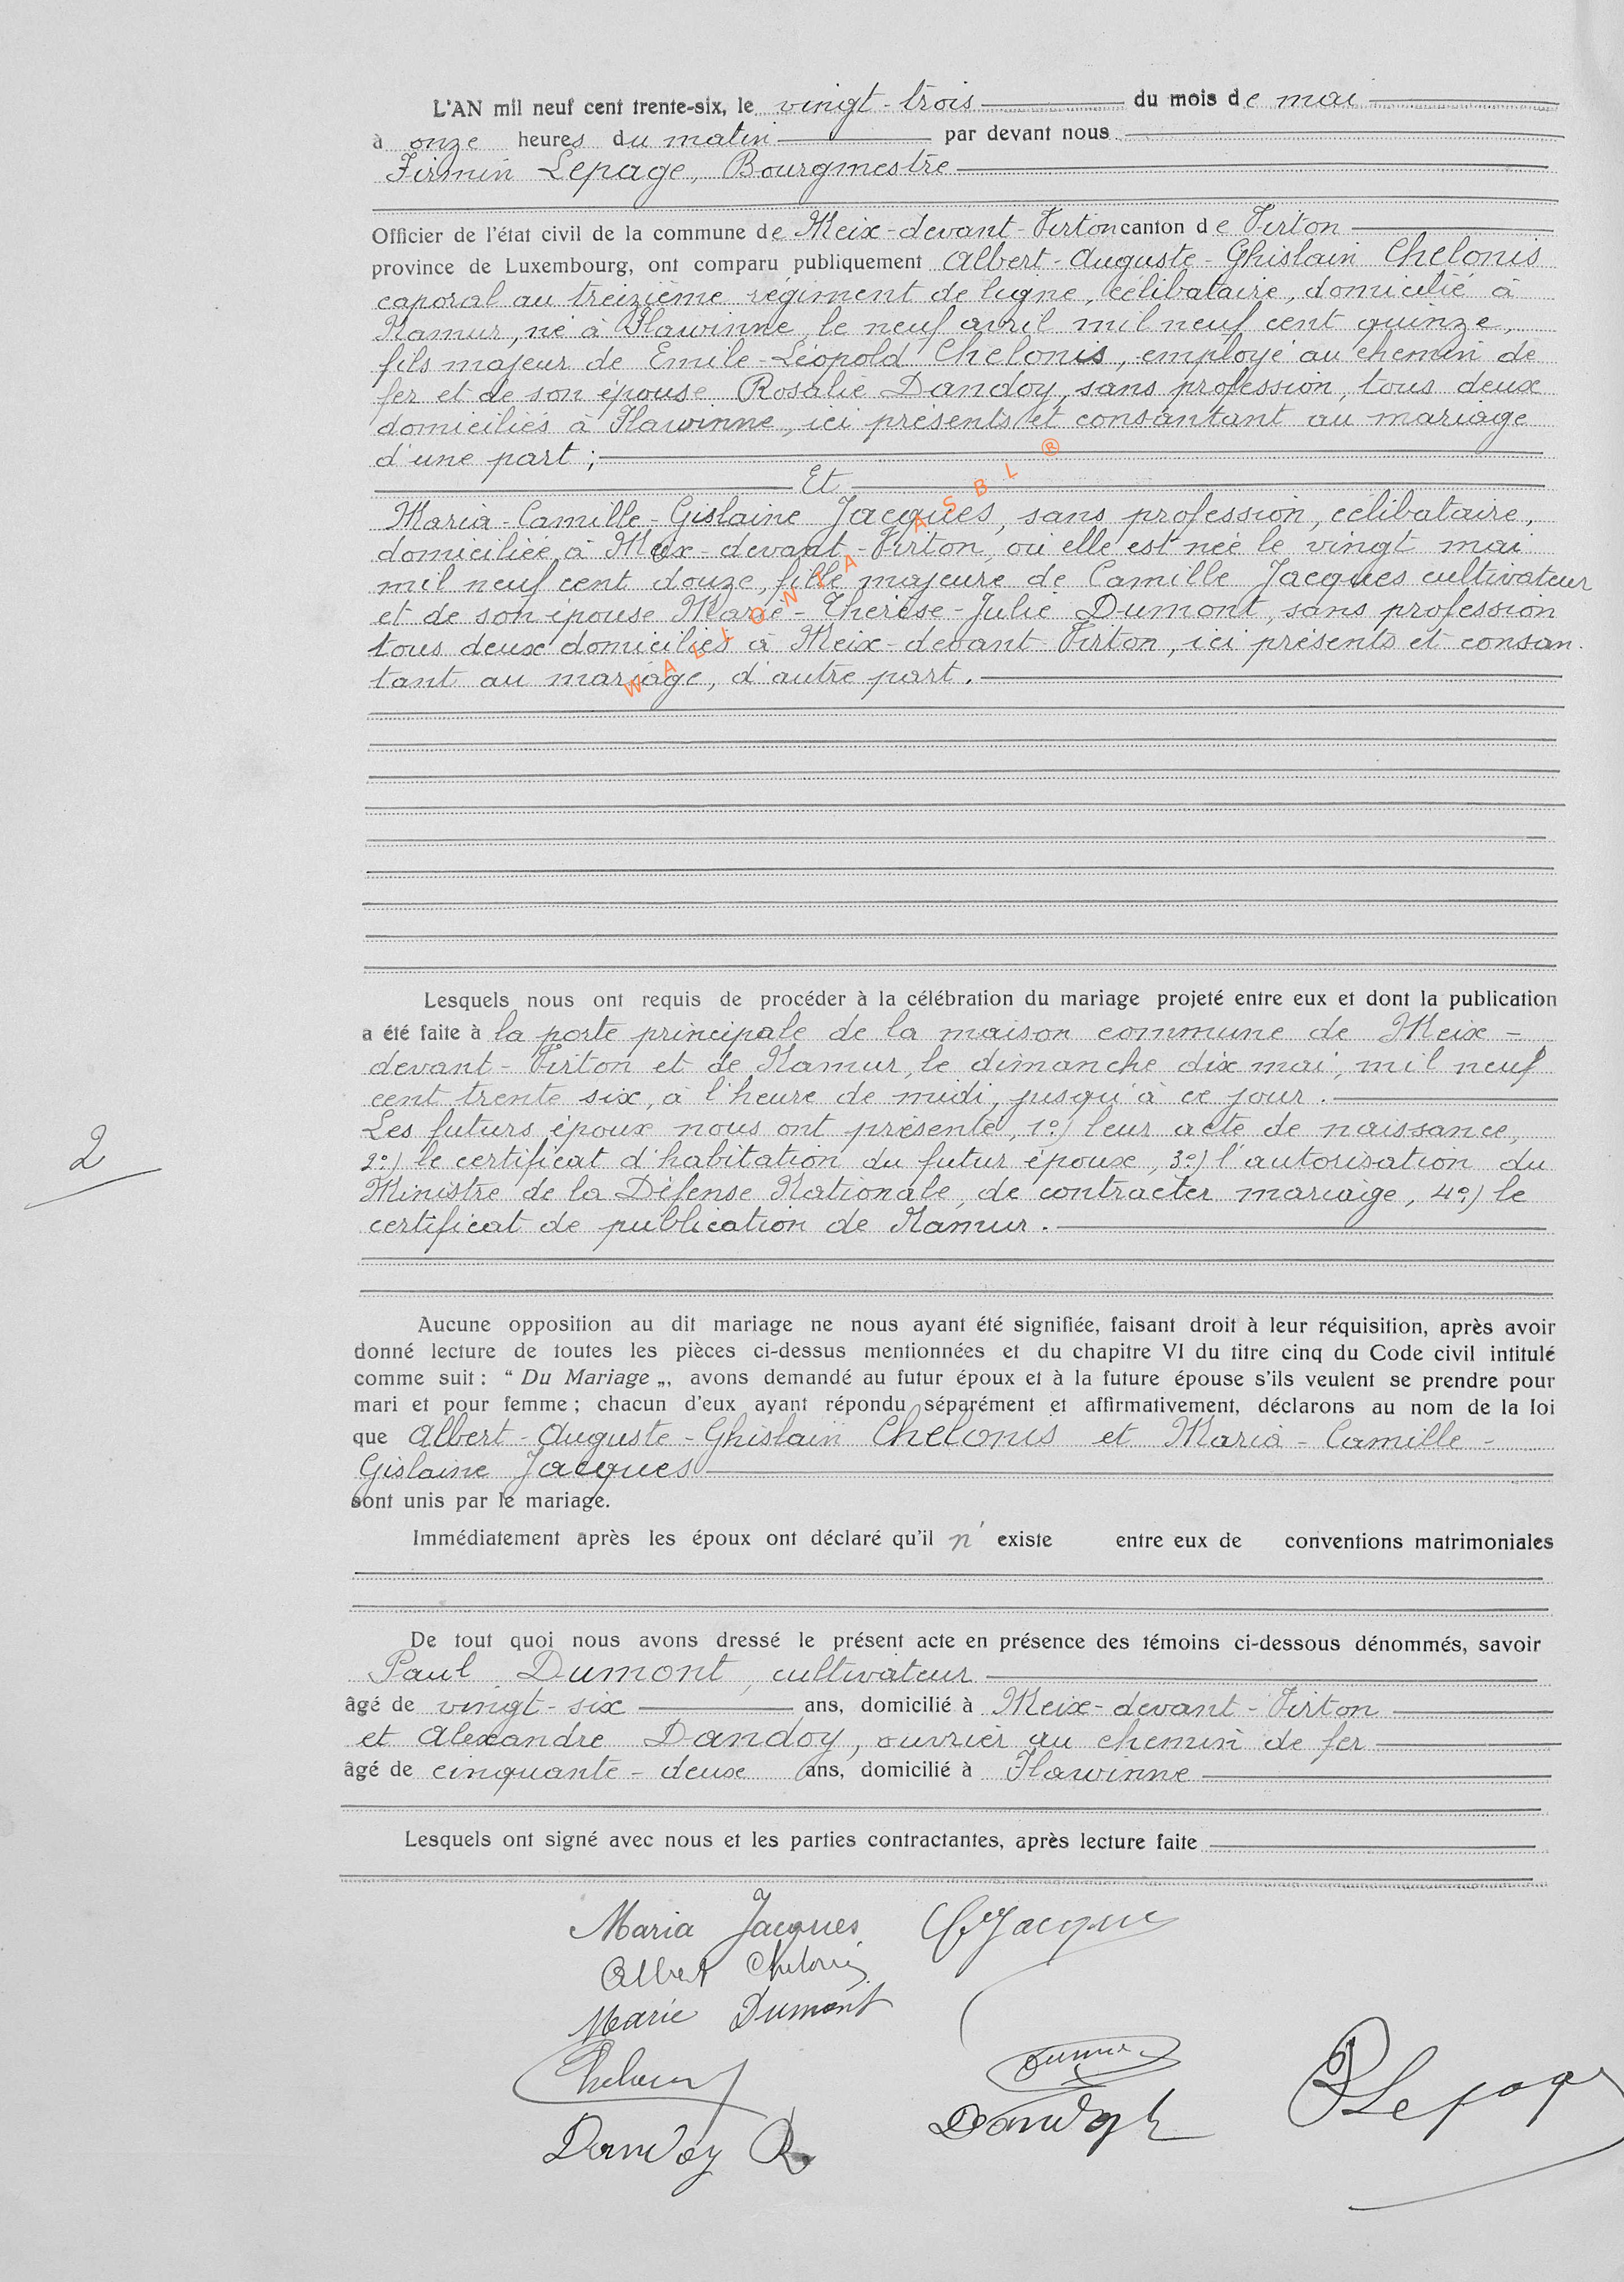 L'AN mil neuf cent trente-six, le vingt-trois du mois de mai
à onze heures du matin par devant nous
Firmin Lepage, Bourgmestre
Officier de l'état civil de la commune de Meix-devant-Virton canton de Virton
province de Luxembourg, ont comparu publiquement Albert-Auguste-Ghislain Chelonis
caporal au treizième régiment de ligne, célibataire, domicilié à
Namur, né à Flawinne, le neuf avril mil neuf cent quinze,
fils majeur de Emile-Léopold Chelonis, employé au chemin de
fer et de son épouse Rosalie Dandoy, sans profession, tous deux
domiciliés à Flawinne, ici présents et consantant au mariage
d'une part ;
Et
Maria-Camille-Gislaine Jacques, sans profession, célibataire,
domiciliée à Meix-devant-Virton, où elle est née le vingt mai
mil neuf cent douze, fille majeure de Camille Jacques cultivateur
et de son épouse Marie-Thérèse-Julie Dumont, sans profession
tous deux domiciliés à Meix-devant-Virton, ici présents et consan-
tant au mariage, d'autre part.
WALLONIA ASBL ®
Lesquels nous ont requis de procéder à la célébration du mariage projeté entre eux et dont la publication
a été faite à la porte principale de la maison commune de Meix-
devant-Virton et de Namur, le dimanche dix mai, mil neuf
cent trente six, à l'heure de midi, jusqu'à ce jour.
Les futurs époux nous ont présenté, 1º) leur acte de naissance,
2º) le certificat d'habitation du futur époux, 3º) l'autorisation du
2
Ministre de la Défense Nationale, de contracter mariage, 4º) le
certificat de publication de Namur.
Aucune opposition au dit mariage ne nous ayant été signifiée, faisant droit à leur réquisition, après avoir
donné lecture de toutes les pièces ci-dessus mentionnées et du chapitre VI du titre cinq du Code civil intitulé
comme suit : “ Du Mariage „, avons demandé au futur époux et à la future épouse s'ils veulent se prendre pour
mari et pour femme ; chacun d'eux ayant répondu séparément et affirmativement, déclarons au nom de la loi
que Albert-Auguste-Ghislain Chelonis et Maria-Camille-
Gislaine Jacques
sont unis par le mariage.
Immédiatement après les époux ont déclaré qu'il n' existe entre eux de conventions matrimoniales
De tout quoi nous avons dressé le présent acte en présence des témoins ci-dessous dénommés, savoir
Paul Dumont, cultivateur
âgé de vingt-six ans, domicilié à Meix-devant-Virton
et Alexandre Dandoy, ouvrier au chemin de fer
âgé de cinquante-deux ans, domicilié à Flawinne
Lesquels ont signé avec nous et les parties contractantes, après lecture faite
Maria Jacques Jacques
Albert Chelonis
Marie Dumont
Dandoy R
Lepage